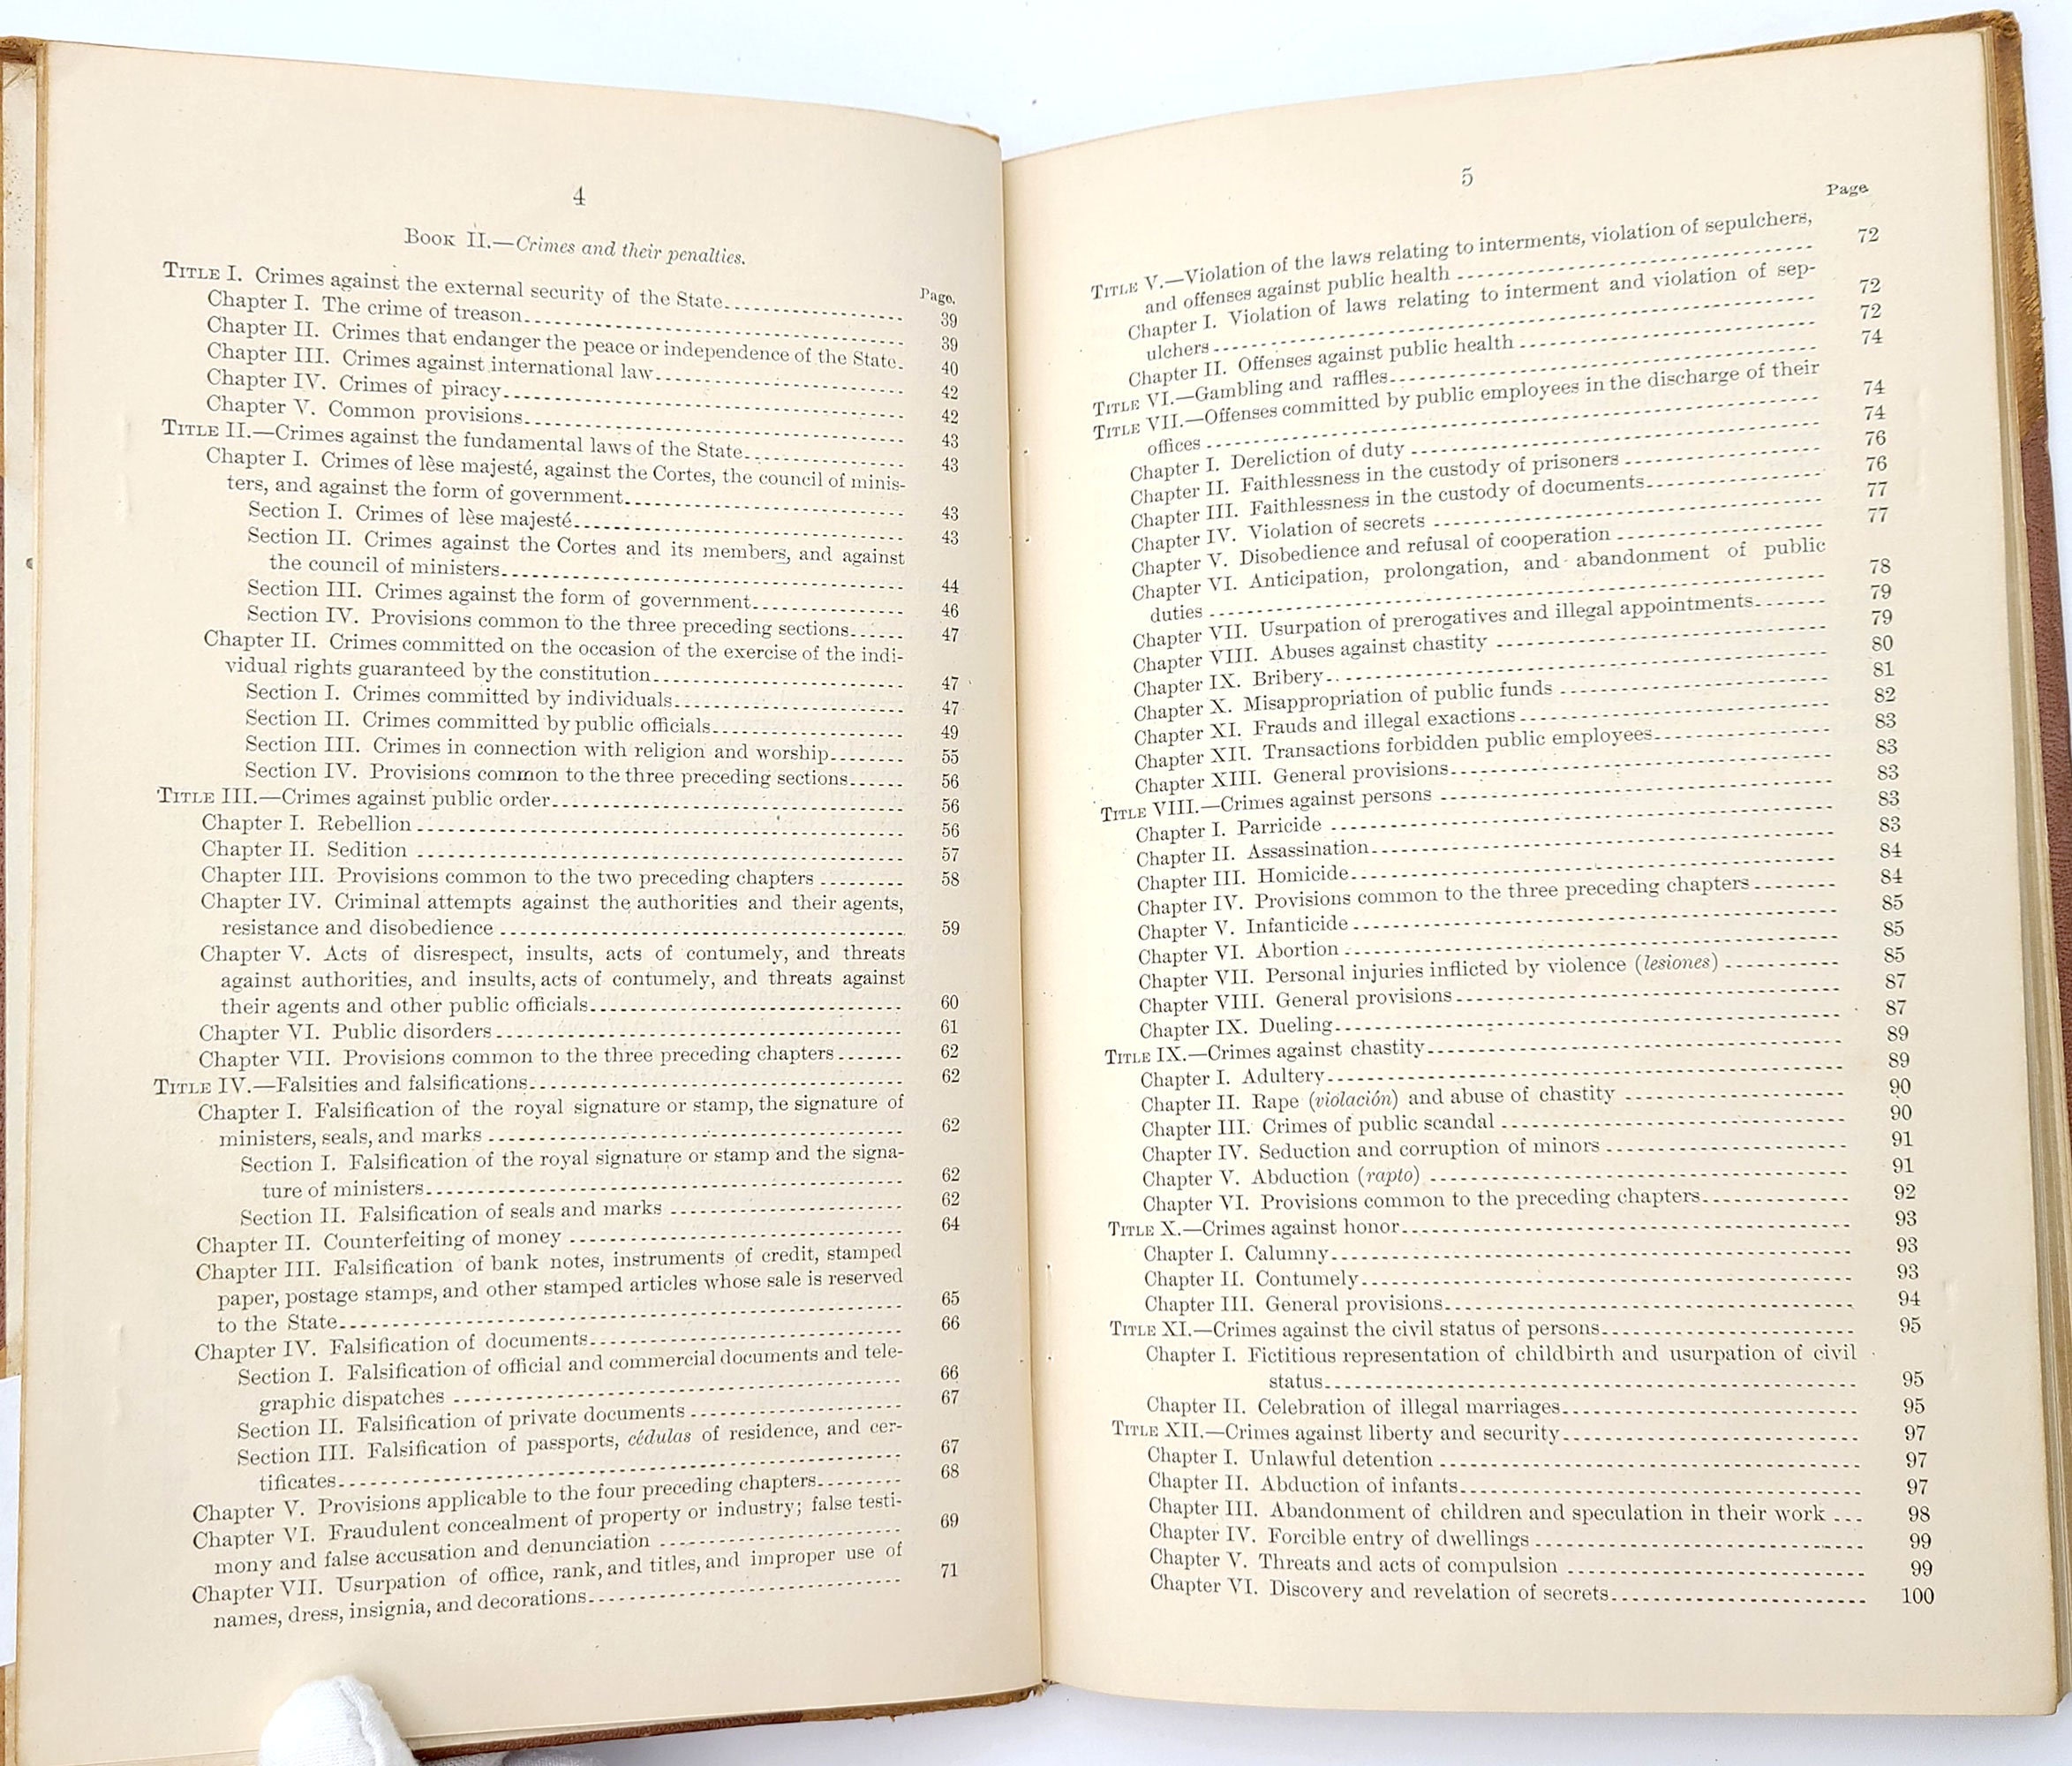 4
BOOK II.—Crimes and their penalties.
Page.
TITLE I. Crimes against the external security of the State 39
Chapter I. The crime of treason 39
Chapter II. Crimes that endanger the peace or independence of the State. 40
Chapter III. Crimes against international law 42
Chapter IV. Crimes of piracy 42
Chapter V. Common provisions 43
TITLE II.—Crimes against the fundamental laws of the State 43
Chapter I. Crimes of lèse majesté, against the Cortes, the council of minis-
ters, and against the form of government 43
Section I. Crimes of lèse majesté 43
Section II. Crimes against the Cortes and its members, and against
the council of ministers 44
Section III. Crimes against the form of government 46
Section IV. Provisions common to the three preceding sections 47
Chapter II. Crimes committed on the occasion of the exercise of the indi-
vidual rights guaranteed by the constitution 47
Section I. Crimes committed by individuals 47
Section II. Crimes committed by public officials 49
Section III. Crimes in connection with religion and worship 55
Section IV. Provisions common to the three preceding sections 56
TITLE III.—Crimes against public order 56
Chapter I. Rebellion 56
Chapter II. Sedition 57
Chapter III. Provisions common to the two preceding chapters 58
Chapter IV. Criminal attempts against the authorities and their agents,
resistance and disobedience 59
Chapter V. Acts of disrespect, insults, acts of contumely, and threats
against authorities, and insults, acts of contumely, and threats against
their agents and other public officials 60
Chapter VI. Public disorders 61
Chapter VII. Provisions common to the three preceding chapters 62
TITLE IV.—Falsities and falsifications 62
Chapter I. Falsification of the royal signature or stamp, the signature of
ministers, seals, and marks 62
Section I. Falsification of the royal signature or stamp and the signa-
ture of ministers 62
Section II. Falsification of seals and marks 62
Chapter II. Counterfeiting of money 64
Chapter III. Falsification of bank notes, instruments of credit, stamped
paper, postage stamps, and other stamped articles whose sale is reserved
to the State 65
Chapter IV. Falsification of documents 66
Section I. Falsification of official and commercial documents and tele-
graphic dispatches 66
Section II. Falsification of private documents 67
Section III. Falsification of passports, cédulas of residence, and cer-
tificates 67
Chapter V. Provisions applicable to the four preceding chapters 68
Chapter VI. Fraudulent concealment of property or industry; false testi-
mony and false accusation and denunciation 69
Chapter VII. Usurpation of office, rank, and titles, and improper use of
names, dress, insignia, and decorations 71
5
Page
TITLE V.—Violation of the laws relating to interments, violation of sepulchers,
and offenses against public health 72
Chapter I. Violation of laws relating to interment and violation of sep-
ulchers 72
Chapter II. Offenses against public health 72
TITLE VI.—Gambling and raffles 74
TITLE VII.—Offenses committed by public employees in the discharge of their
offices 74
Chapter I. Dereliction of duty 74
Chapter II. Faithlessness in the custody of prisoners 76
Chapter III. Faithlessness in the custody of documents 76
Chapter IV. Violation of secrets 77
Chapter V. Disobedience and refusal of cooperation 77
Chapter VI. Anticipation, prolongation, and abandonment of public
duties 78
Chapter VII. Usurpation of prerogatives and illegal appointments 79
Chapter VIII. Abuses against chastity 79
Chapter IX. Bribery 80
Chapter X. Misappropriation of public funds 81
Chapter XI. Frauds and illegal exactions 82
Chapter XII. Transactions forbidden public employees 83
Chapter XIII. General provisions 83
TITLE VIII.—Crimes against persons 83
Chapter I. Parricide 83
Chapter II. Assassination 83
Chapter III. Homicide 84
Chapter IV. Provisions common to the three preceding chapters 84
Chapter V. Infanticide 85
Chapter VI. Abortion 85
Chapter VII. Personal injuries inflicted by violence (lesiones) 85
Chapter VIII. General provisions 87
Chapter IX. Dueling 87
TITLE IX.—Crimes against chastity 89
Chapter I. Adultery 89
Chapter II. Rape (violación) and abuse of chastity 90
Chapter III. Crimes of public scandal 90
Chapter IV. Seduction and corruption of minors 91
Chapter V. Abduction (rapto) 91
Chapter VI. Provisions common to the preceding chapters 92
TITLE X.—Crimes against honor 93
Chapter I. Calumny 93
Chapter II. Contumely 93
Chapter III. General provisions 94
TITLE XI.—Crimes against the civil status of persons 95
Chapter I. Fictitious representation of childbirth and usurpation of civil
status 95
Chapter II. Celebration of illegal marriages 95
TITLE XII.—Crimes against liberty and security 97
Chapter I. Unlawful detention 97
Chapter II. Abduction of infants 97
Chapter III. Abandonment of children and speculation in their work 98
Chapter IV. Forcible entry of dwellings 99
Chapter V. Threats and acts of compulsion 99
Chapter VI. Discovery and revelation of secrets 100